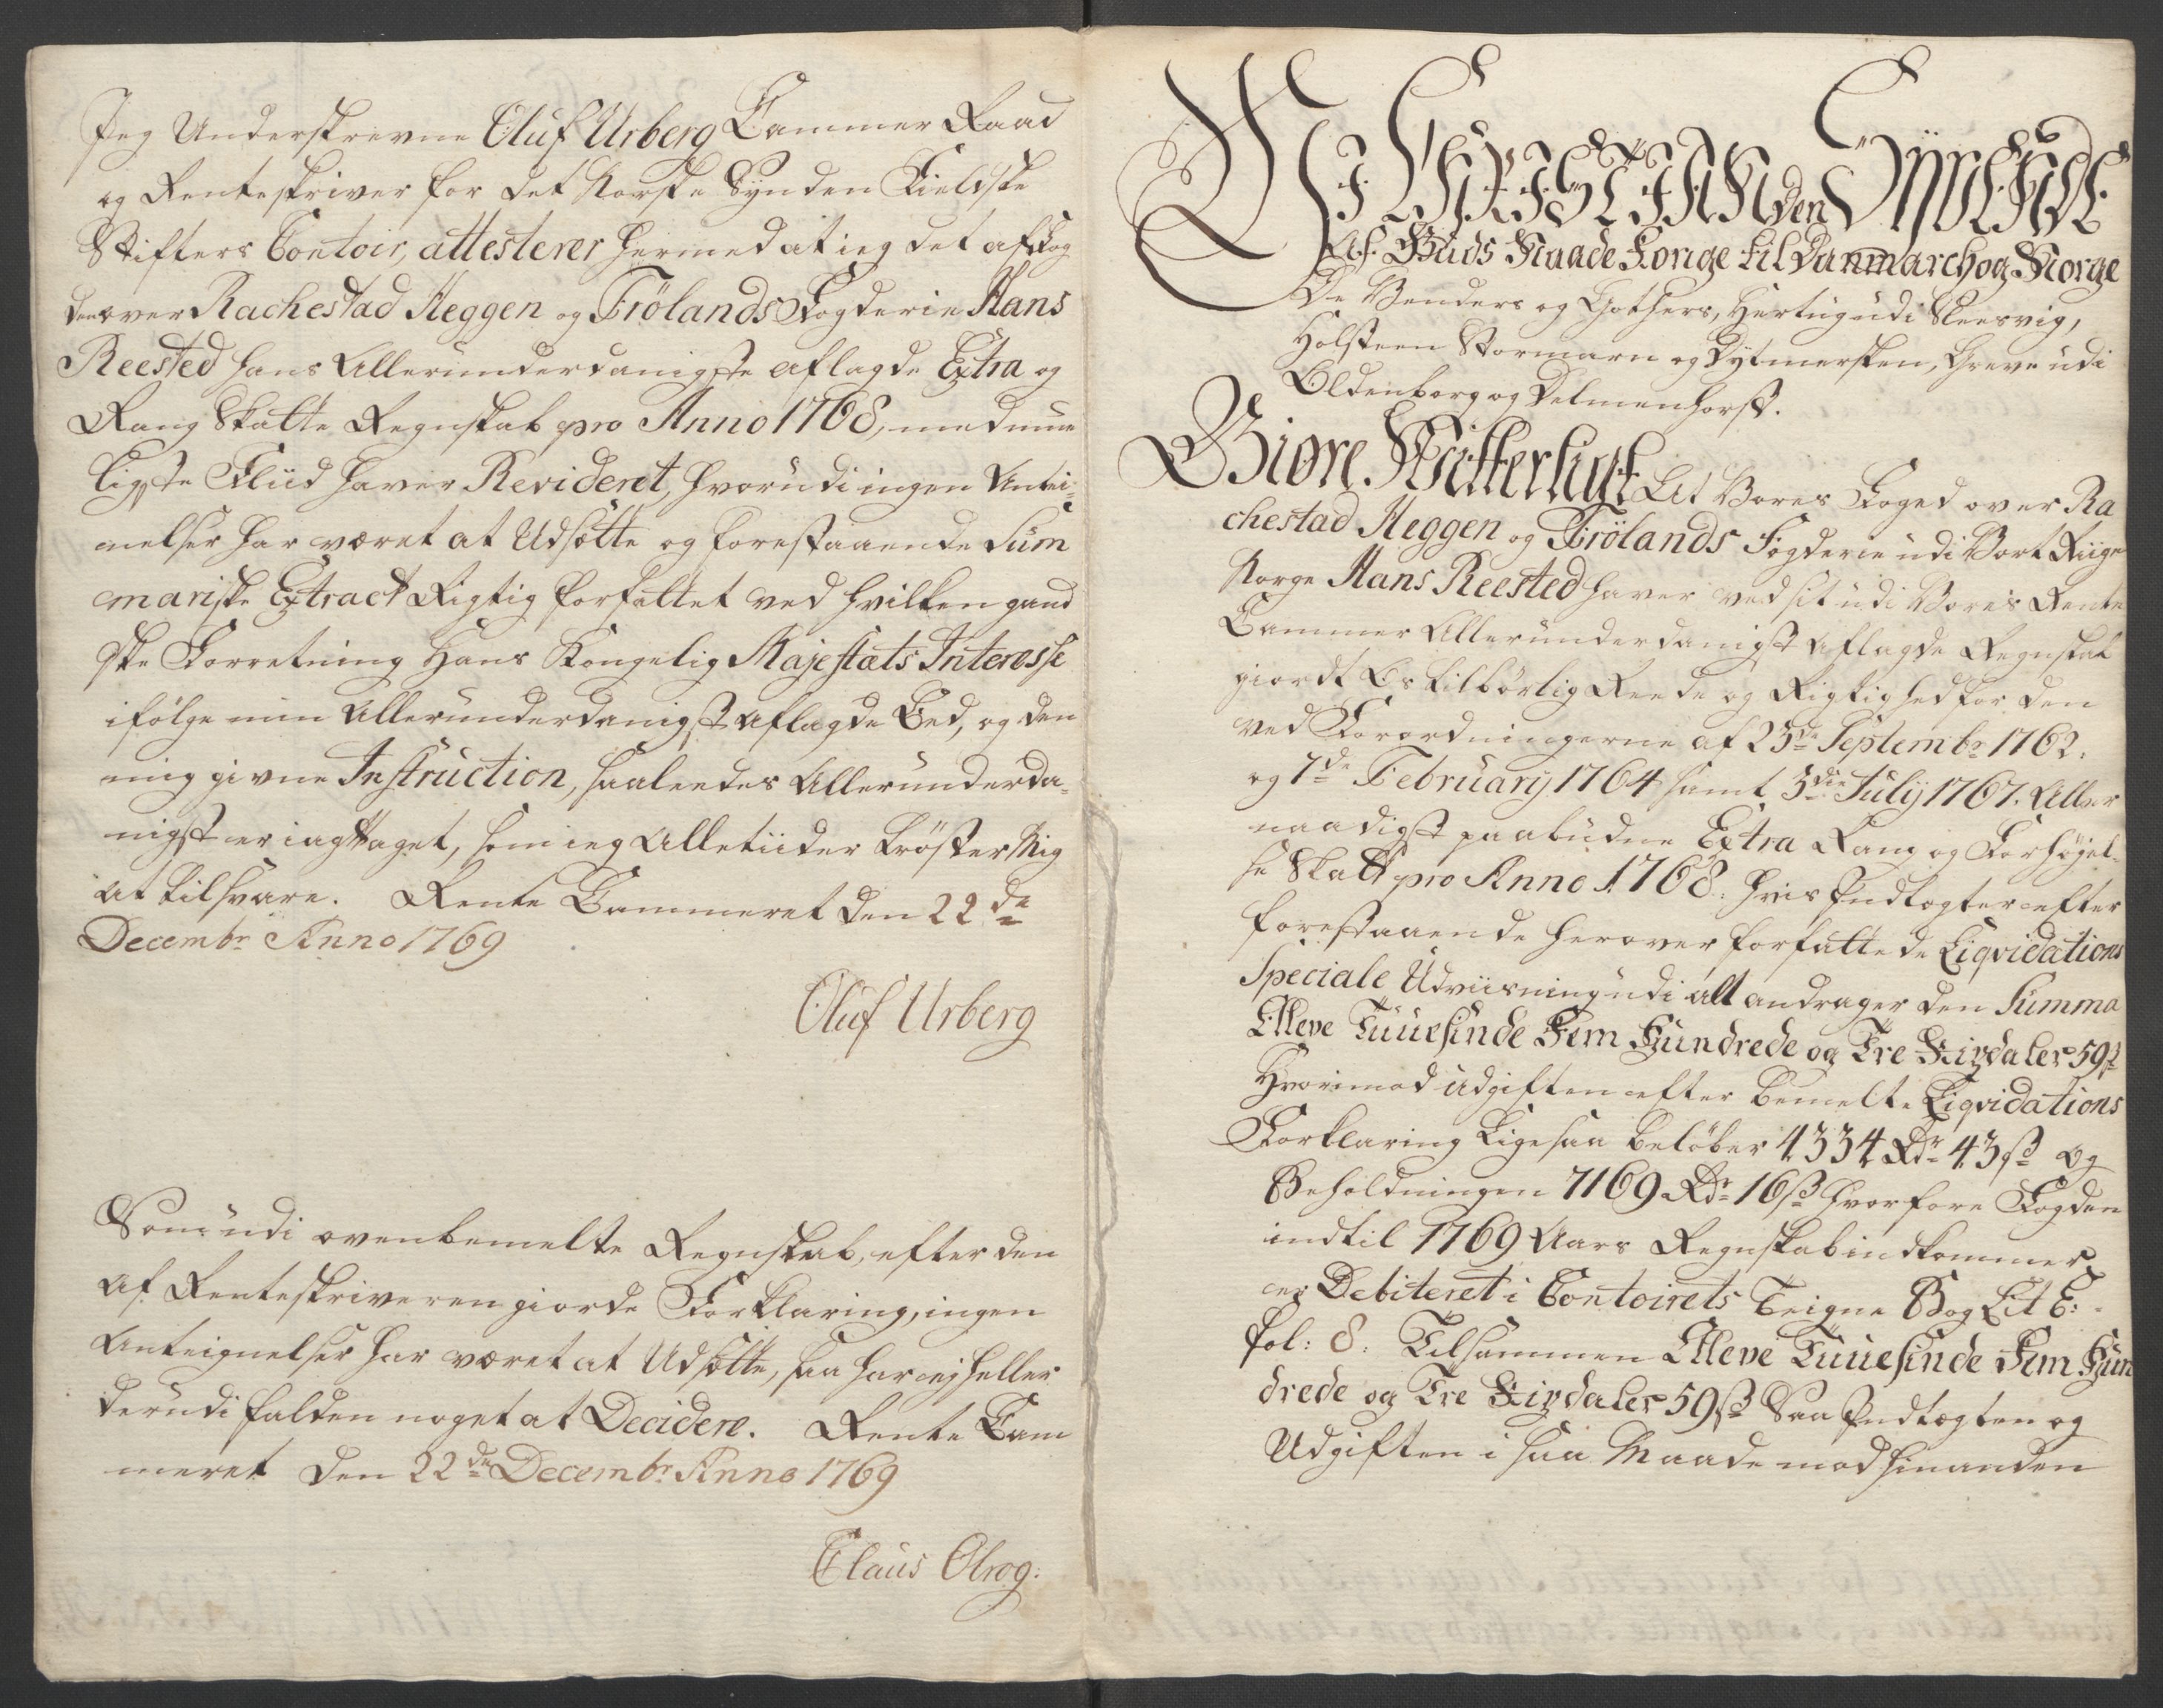 Jeg Underskrevne Oluf Urberg Cammer Raad
og Renteskriver for det Norske Synden Fieldske
Stifters Contoir, attesterer hermed at ieg det af Fog
den over Rachestad Heggen og Frölands Fogderie Hans
Reested hans Allerunderdanigste aflagde Extra og
Rang Skatte Regnskab pro Anno 1768, med mue
ligste Fliid haver Revideret, hvorudi ingen Antei-
nelser har været at Udsætte og forestaaende Sum
mariske Extract Rigtig forfattet ved hvilken gand
ske Forretning Hans Kongelig Majestæts Interesse
ifölge min Allerunderdanigst aflagde Eed, og den
mig givne Instruction, saaleedes Allerunderda-
nigst er iagttaget, som ieg Alletiider tröster Mig
at tilsvare. Rente Cammeret den 22de
Decembr Anno 1769
Oluf Urberg
Som udi ovenbemelte Regnskab, efter den
af Renteskriveren giorde Forklaring, ingen
Anteignelser har været at Udsætte, saa har ej heller
derudi falden noget at Decidere. Rente Cam
meret den 22de Decembr Anno 1769
Claus Olrog:
Wi CHRISTIAN den SYVENDE
Af Guds Naade Konge til Danmarch og Norge
De Venders og Gothers, Hertug udi Sleesvig,
Holsteen Stormarn og Dytmersken, Greve udi
Oldenborg og Delmenhorst.
Giöre Witterligt At Vores Foged over Ra
chestad Heggen og Frölands Fogderie udi Vort Riige
Norge Hans Reested haver ved sit udi Vores Rente
Cammer Allerunderdanigst aflagde Regnskab
giordt Os tilbörlig Reede og Rigtighed for den
ved Forordningerne af 23de Septembr 1762.
og 7de February 1764 samt 3die July 1767. Aller
naadigst paabudne Extra Rang og Forhöjel-
se Skatt pro Anno 1768. hvis Indtægter efter
forestaaende herover forfattede Liqvidations
Speciale Udviisning udi alt andrager den Summa
Elleve Tuuesinde Fem Hundrede og Tre Rixdaler 59 ß
Hvorimod Udgiften efter bemelte Liqvidations
Forklaring Ligesaa belöber 4334 Rdr 43 ß og
Beholdningen 7169 Rdr 16 ß hvorfore Fogden
indtil 1769 Aars Regnskab indkommer
er Debiteret i Contoirets Teigne Bog Lit E:
fol: 8. Tilsammen Elleve Tuuesinde Fem Hun
drede og Tre Rixdaler 59 ß Saa Indtægten og
Udgiften i saa Maade mod hinanden